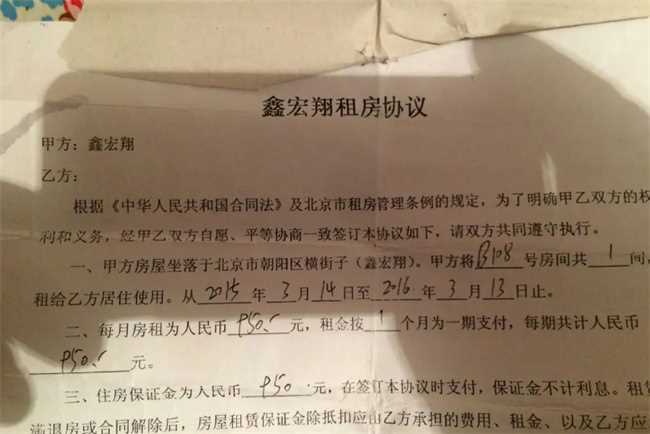 鑫宏翔租房协议
甲方：鑫宏翔
乙方：
根据《中华人民共和国合同法》及北京市租房管理条例的规定，为了明确甲乙双方的权
利和义务，经甲乙双方自愿、平等协商一致签订本协议如下，请双方共同遵守执行。
一、甲方房屋坐落于北京市朝阳区横街子（鑫宏翔）。甲方将B108号房间共1间，
租给乙方居住使用。从2015年3月14日至2016年3月13日止。
二、每月房租为人民币950.元，租金按1个月为一期支付，每期共计人民币
950.元。
三、住房保证金为人民币950元，在签订本协议时支付，保证金不计利息。租赁
满退房或合同解除后，房屋租赁保证金除抵扣应由乙方承担的费用、租金、以及乙方应